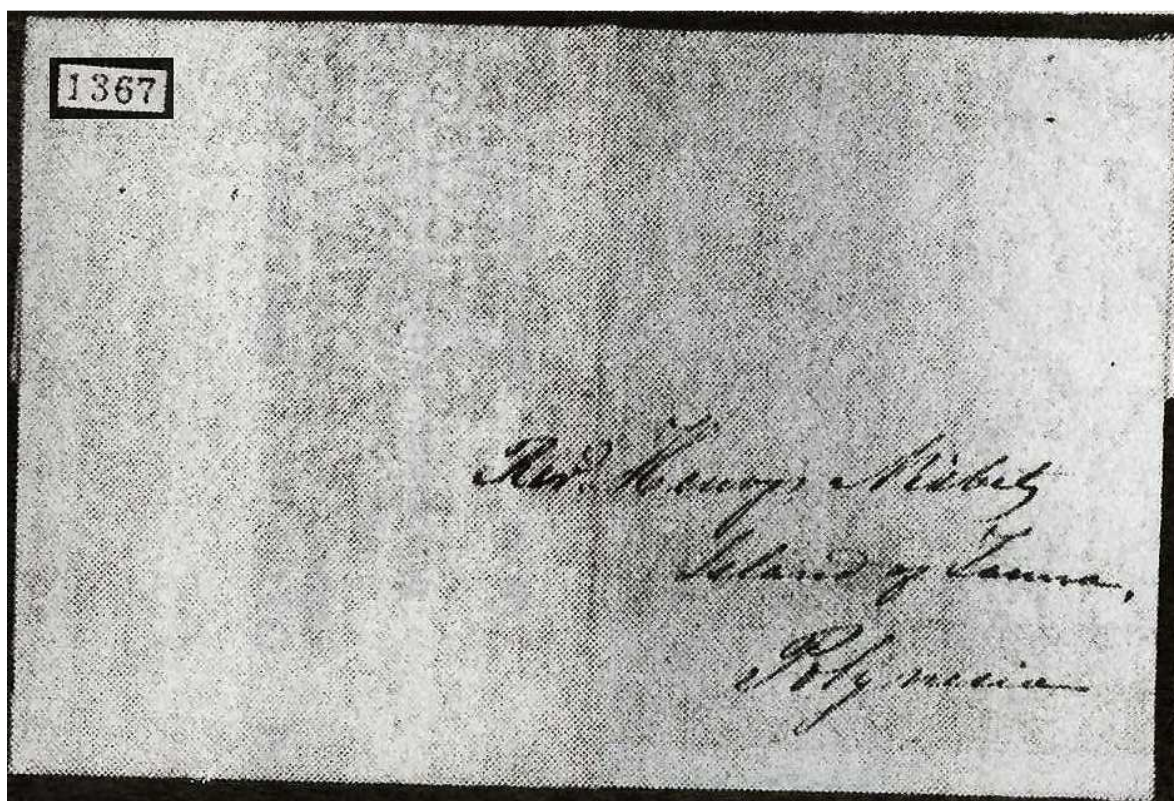 1367
Revd. Henry Nisbet,
Island of Tanna,
Polynesia